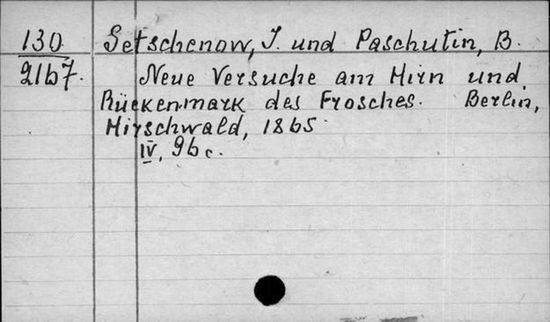 130 Setschenow, J. und Paschutin, B.
2167. Neue Versuche am Hirn und
Rückenmark des Frosches. Berlin,
Hirschwald, 1865.
IV, 96 c.